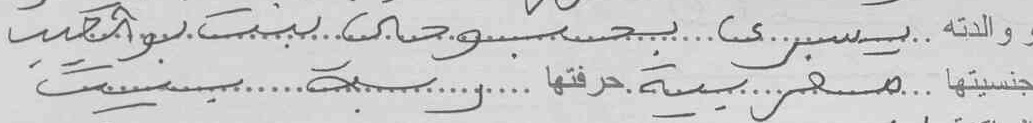 و والدته يسرى بحسبوحان بنت بوشعيب
جنسيتها مغربية حرفتها ربة بيت